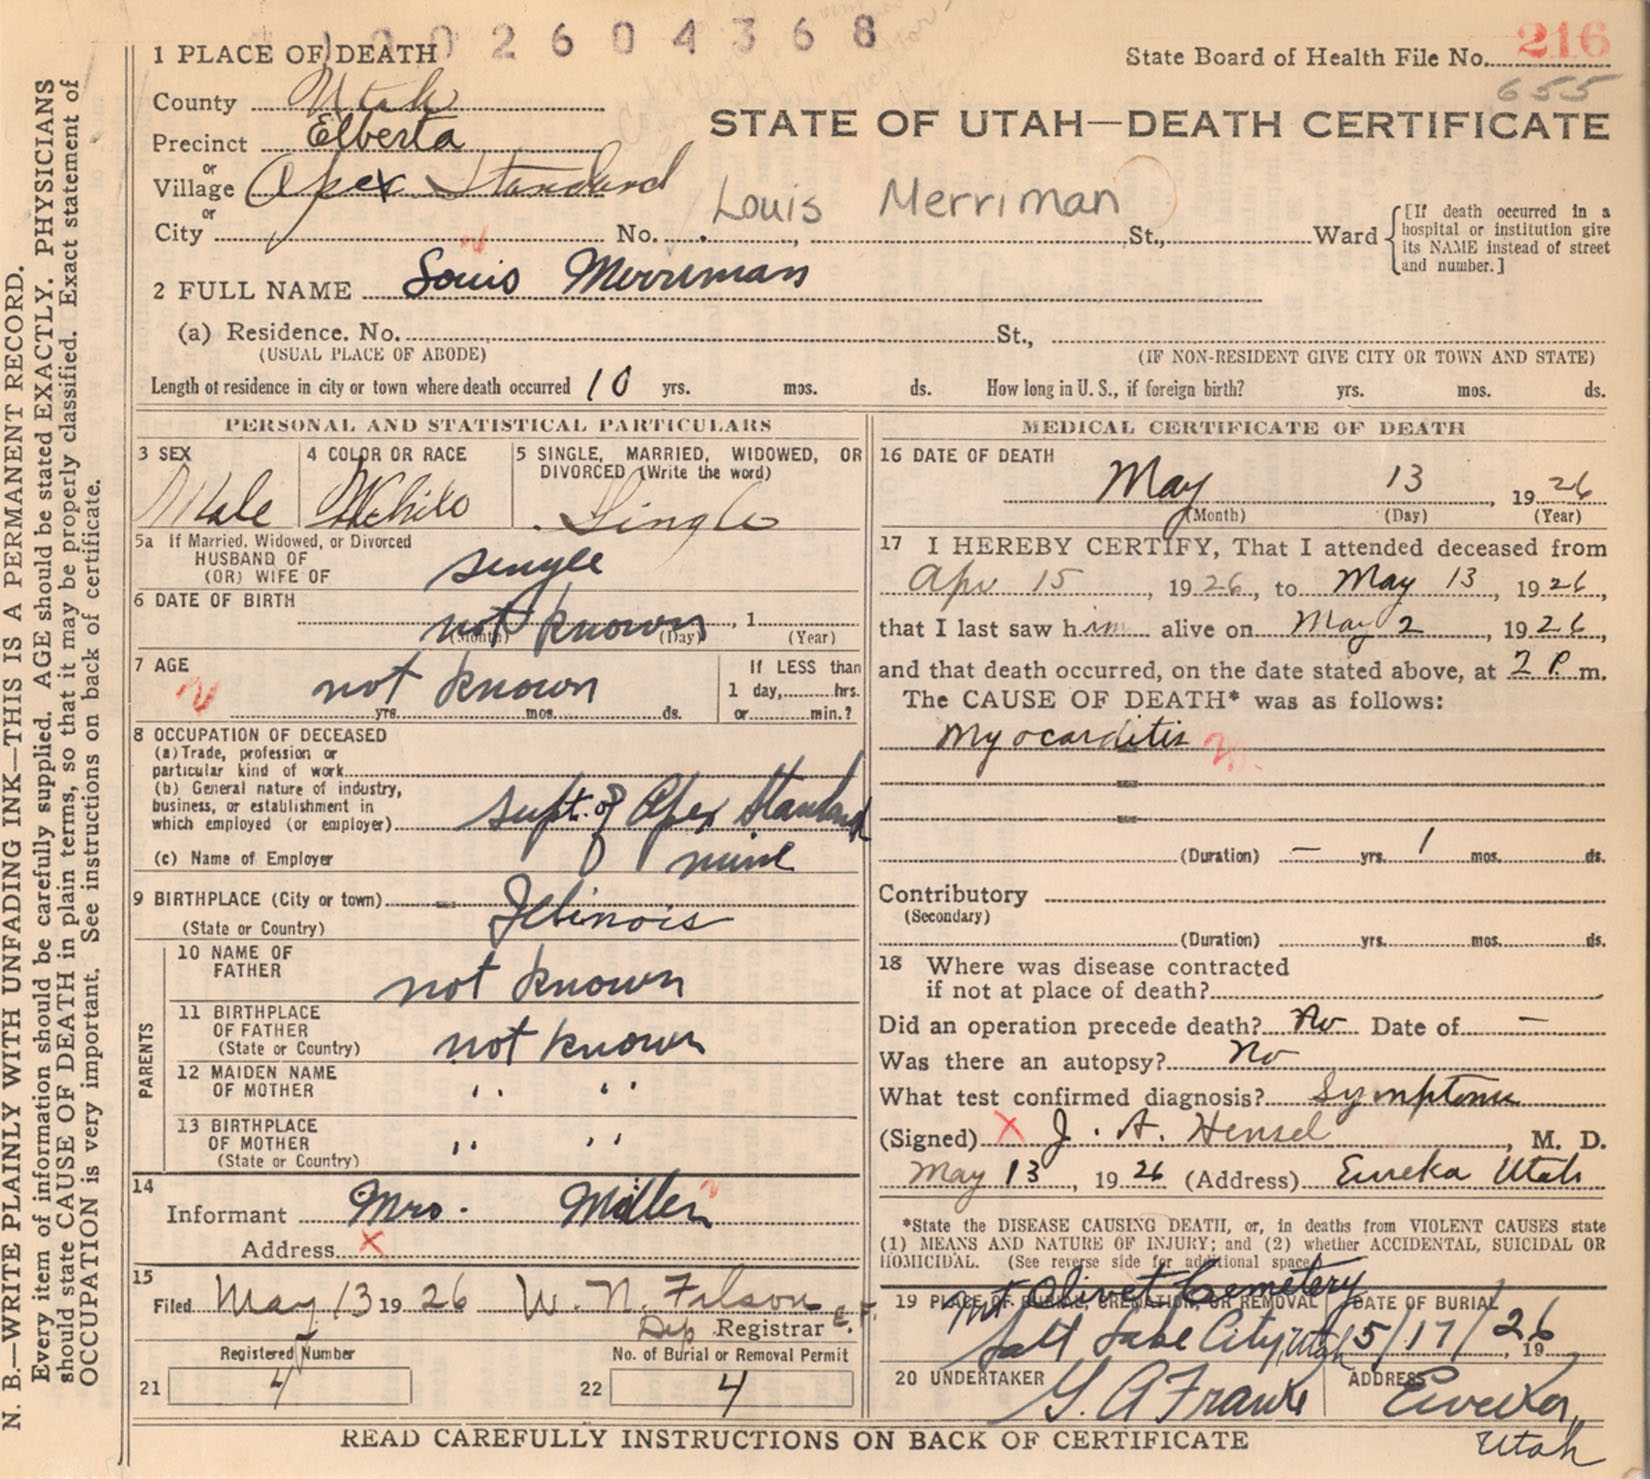 2026 0 4 3 6 8
1 PLACE OF DEATH
State Board of Health File No. 216
655
County Utah
STATE OF UTAH—DEATH CERTIFICATE
Precinct Elberta
or
Village Apex Standard
or
Louis Merriman
City No. , St., Ward
[If death occurred in a
hospital or institution give
its NAME instead of street
and number.]
2 FULL NAME Louis Merriman
(a) Residence. No. St.,
(USUAL PLACE OF ABODE) (IF NON-RESIDENT GIVE CITY OR TOWN AND STATE)
Length of residence in city or town where death occurred 10 yrs. mos. ds. How long in U. S., if foreign birth? yrs. mos. ds.
PERSONAL AND STATISTICAL PARTICULARS
3 SEX
Male
4 COLOR OR RACE
White
5 SINGLE, MARRIED, WIDOWED, OR
DIVORCED (Write the word)
Single
5a If Married, Widowed, or Divorced
HUSBAND OF
(OR) WIFE OF single
6 DATE OF BIRTH
not known , 1
(Month) (Day) (Year)
7 AGE
not known
yrs. mos. ds.
If LESS than
1 day, hrs.
or min.?
8 OCCUPATION OF DECEASED
(a) Trade, profession or
particular kind of work
(b) General nature of industry,
business, or establishment in
which employed (or employer) supt. of Apex Standard
(c) Name of Employer mine
9 BIRTHPLACE (City or town)
(State or Country) Illinois
PARENTS
10 NAME OF
FATHER not known
11 BIRTHPLACE
OF FATHER
(State or Country) not known
12 MAIDEN NAME
OF MOTHER " "
13 BIRTHPLACE
OF MOTHER " "
(State or Country)
14
Informant Mrs. Miller
Address X
15
Filed May 13 1926 W. N. Filson E. F.
Dep Registrar
Registered Number
21 4
No. of Burial or Removal Permit
22 4
MEDICAL CERTIFICATE OF DEATH
16 DATE OF DEATH
May 13 , 1926
(Month) (Day) (Year)
17 I HEREBY CERTIFY, That I attended deceased from
Apr 15 , 1926, to May 13, 1926,
that I last saw him alive on May 2 , 1926,
and that death occurred, on the date stated above, at 2 P. m.
The CAUSE OF DEATH* was as follows:
Myocarditis
(Duration) — yrs. 1 mos. ds.
Contributory
(Secondary)
(Duration) yrs. mos. ds.
18 Where was disease contracted
if not at place of death?
Did an operation precede death? No Date of —
Was there an autopsy? No
What test confirmed diagnosis? Symptoms
(Signed) X J. A. Hensel , M. D.
May 13 , 1926 (Address) Eureka Utah
*State the DISEASE CAUSING DEATH, or, in deaths from VIOLENT CAUSES state
(1) MEANS AND NATURE OF INJURY; and (2) whether ACCIDENTAL, SUICIDAL OR
HOMICIDAL. (See reverse side for additional space)
19 PLACE OF BURIAL, CREMATION, OR REMOVAL
Mt Olivet Cemetery
Salt Lake City, Utah
DATE OF BURIAL
5/17/26 , 19
20 UNDERTAKER
G. A. Franke
ADDRESS
Eureka,
Utah
READ CAREFULLY INSTRUCTIONS ON BACK OF CERTIFICATE
N. B.—WRITE PLAINLY WITH UNFADING INK—THIS IS A PERMANENT RECORD.
Every item of information should be carefully supplied. AGE should be stated EXACTLY. PHYSICIANS
should state CAUSE OF DEATH in plain terms, so that it may be properly classified. Exact statement of
OCCUPATION is very important. See instructions on back of certificate.